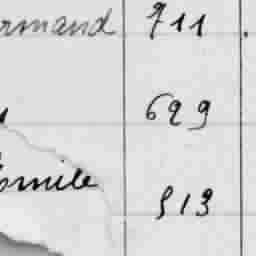 ormand 711
629
omile 513